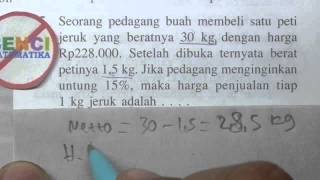 BENCI
MATEMATIKA
Seorang pedagang buah membeli satu peti
jeruk yang beratnya 30 kg, dengan harga
Rp228.000. Setelah dibuka ternyata berat
petinya 1,5 kg. Jika pedagang menginginkan
untung 15%, maka harga penjualan tiap
1 kg jeruk adalah . . . .
Netto = 30 - 1,5 = 28,5 kg
H.